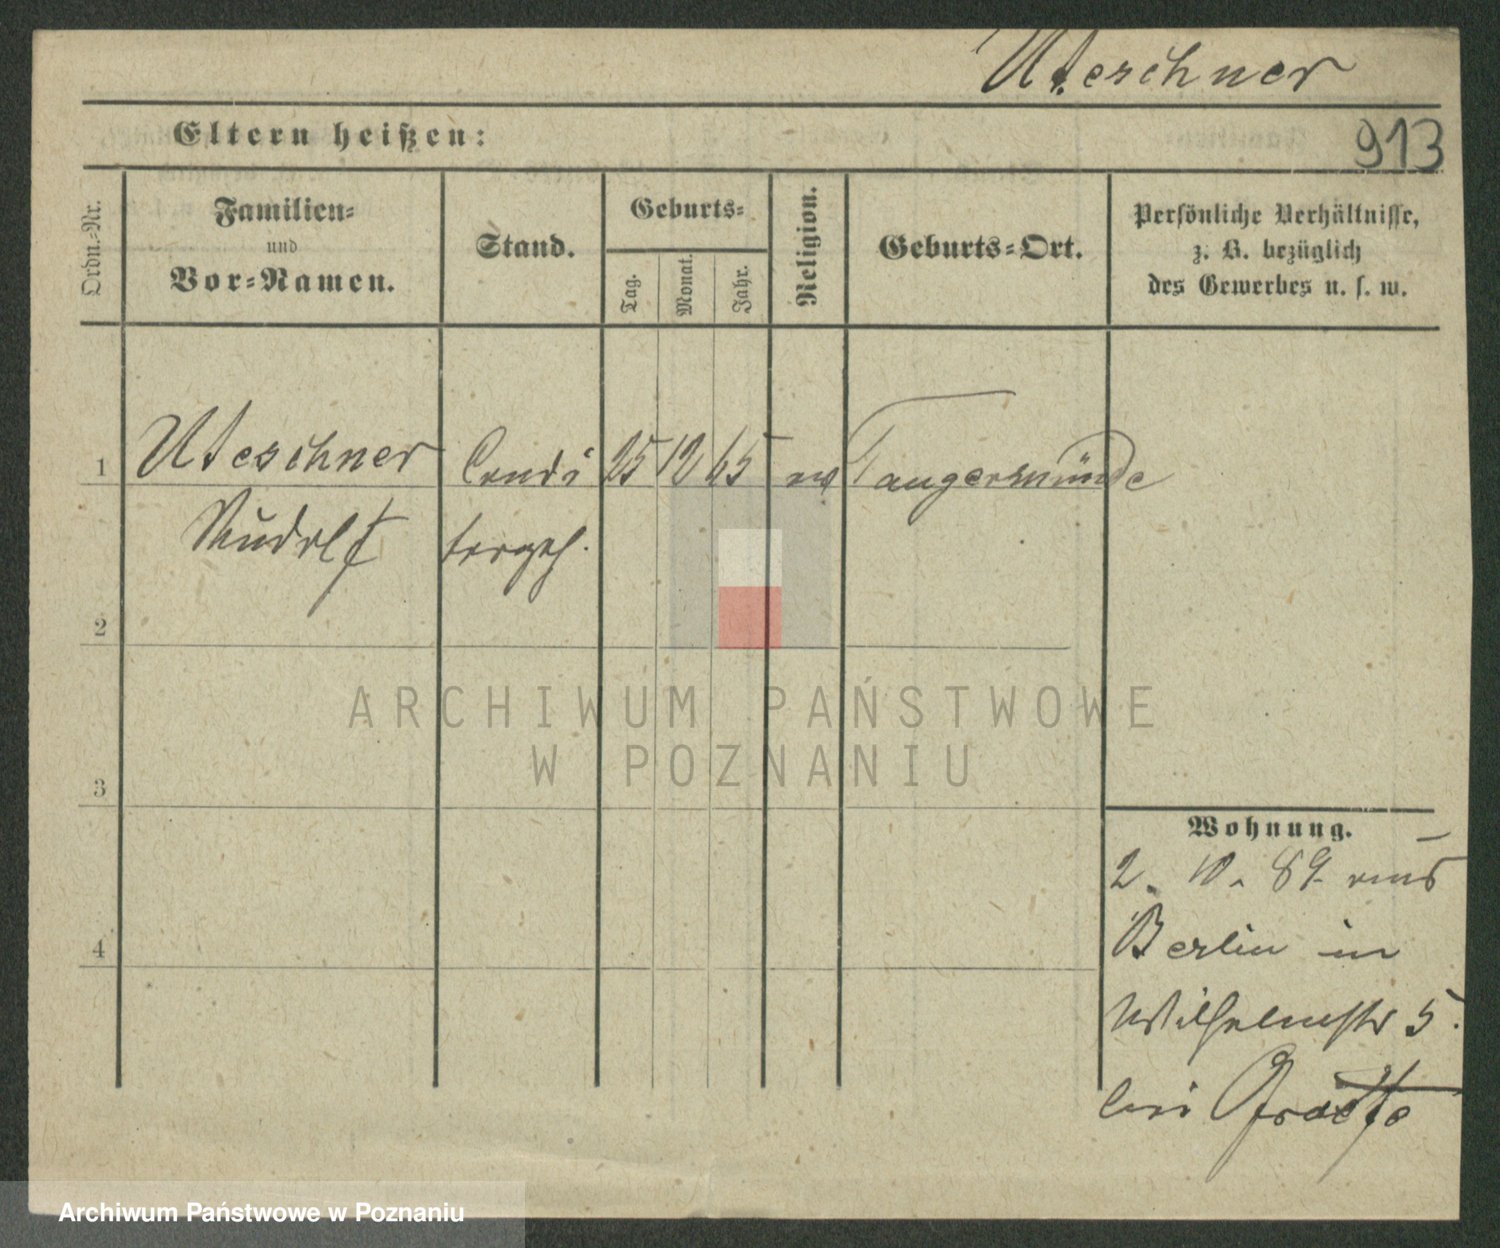 Uteschner
Eltern heißen:
913
Ordn.-Nr.
Familien-
und
Vor-Namen.
Stand.
Geburts-
Tag.
Monat.
Jahr.
Religion.
Geburts-Ort.
Persönliche Verhältnisse,
z. B. bezüglich
des Gewerbes u. s. w.
1 Uteschner Condi 25 12 65 ev Tangermünde
Rudolf torgeh.
2
3
4
Wohnung.
2. 10. 89 aus
Berlin in
Wilhelmstr 5.
bei
ARCHIWUM PAŃSTWOWE
W POZNANIU
Archiwum Państwowe w Poznaniu